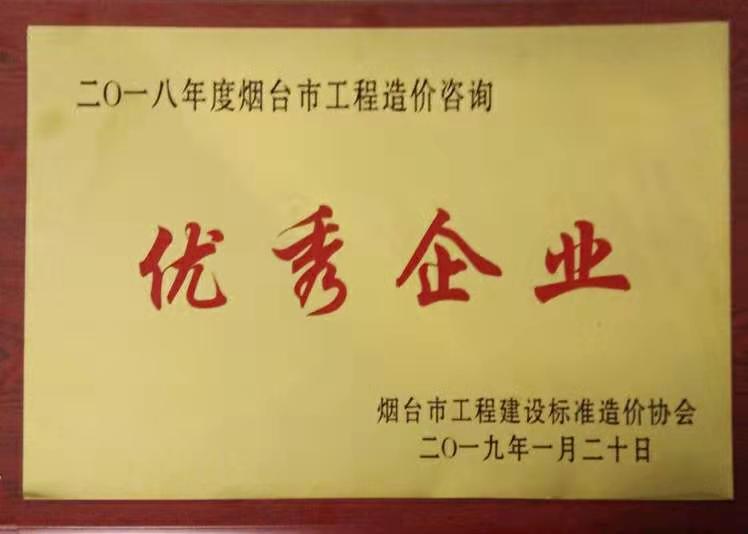 二〇一八年度烟台市工程造价咨询
优秀企业
烟台市工程建设标准造价协会
二〇一九年一月二十日